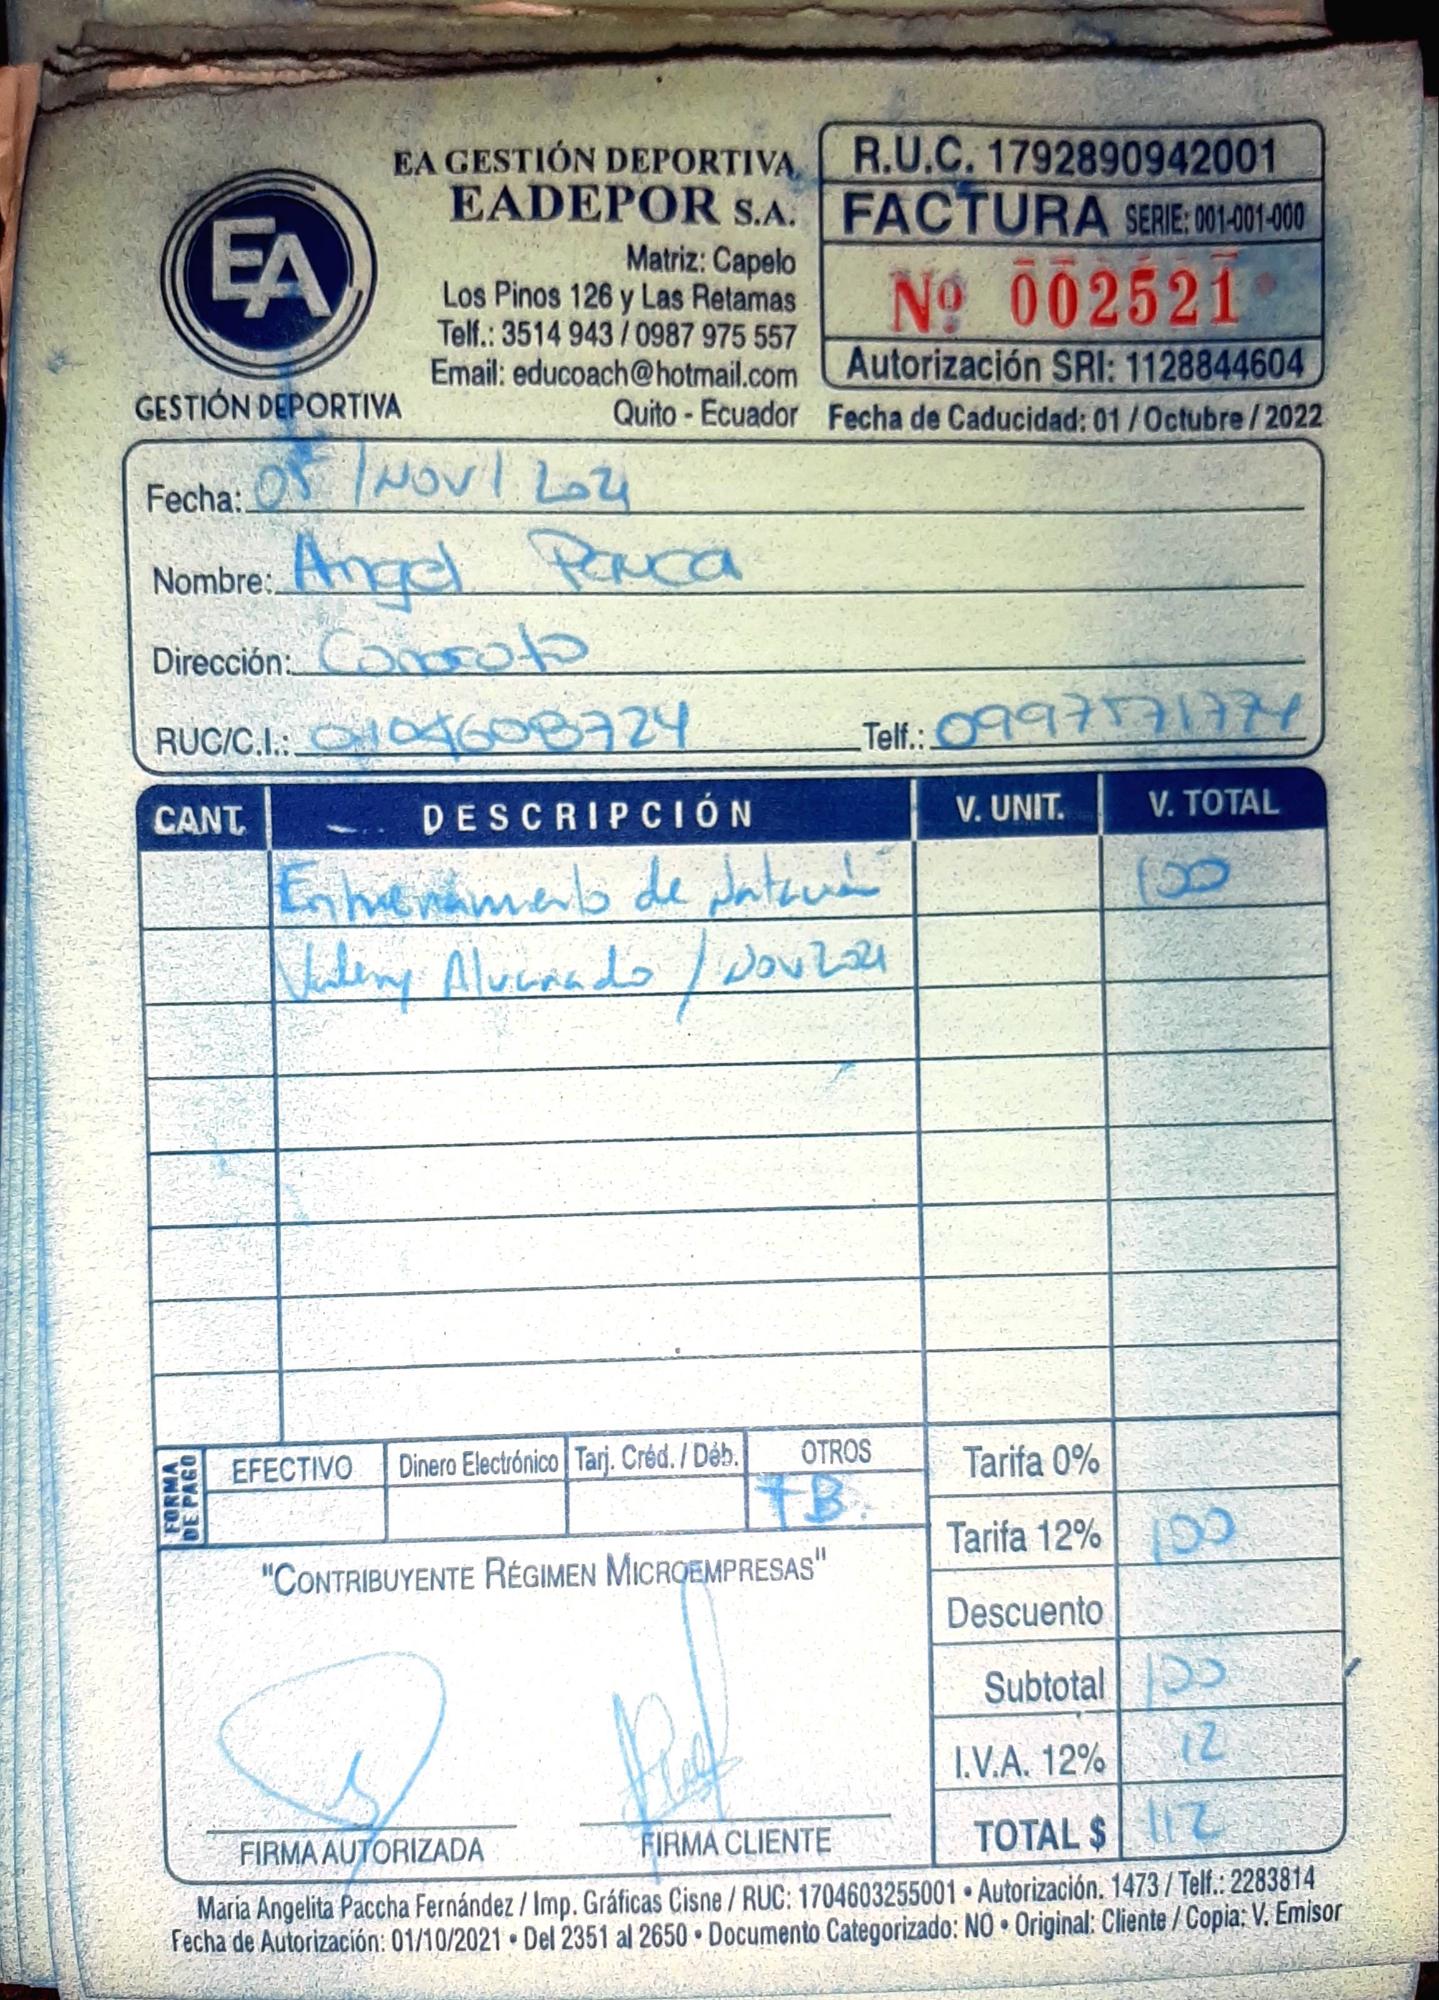 EA GESTIÓN DEPORTIVA
EADEPOR S.A.
Matriz: Capelo
Los Pinos 126 y Las Retamas
Telf.: 3514 943 / 0987 975 557
Email: educoach@hotmail.com
Quito - Ecuador
EA
GESTIÓN DEPORTIVA
R.U.C. 1792890942001
FACTURA SERIE: 001-001-000
Nº 002521
Autorización SRI: 1128844604
Fecha de Caducidad: 01 / Octubre / 2022
Fecha: 05 / NOV / 2021
Nombre: Angel
Dirección: Conocoto
RUC/C.I.: 0104608724 Telf.:
CANT. DESCRIPCIÓN V. UNIT. V. TOTAL
Entrenamiento de Natación 100
Alvarado / Nov 2021
FORMA DE PAGO
EFECTIVO Dinero Electrónico Tarj. Créd. / Déb. OTROS
TB.
Tarifa 0%
Tarifa 12% 100
Descuento
Subtotal 100
I.V.A. 12% 12
TOTAL $ 112
"CONTRIBUYENTE RÉGIMEN MICROEMPRESAS"
FIRMA AUTORIZADA FIRMA CLIENTE
María Angelita Paccha Fernández / Imp. Gráficas Cisne / RUC: 1704603255001 • Autorización. 1473 / Telf.: 2283814
Fecha de Autorización: 01/10/2021 • Del 2351 al 2650 • Documento Categorizado: NO • Original: Cliente / Copia: V. Emisor